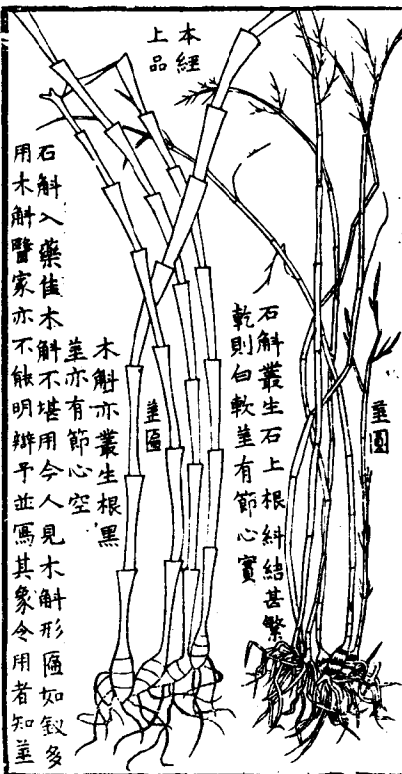 本經
上品
莖圓
石斛叢生石上根糾結甚繁
乾則白軟莖有節心實
莖匾
木斛亦叢生根黑
莖亦有節心空
石斛入藥佳木斛不堪用今人見木斛形匾如釵多
用木斛醫家亦不能明辨予並寫其象令用者知莖